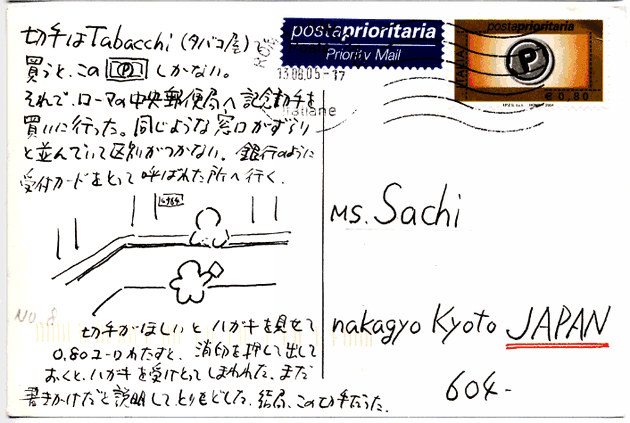 切手はTabacchi (タバコ屋)で
買うと、この P しかない。
それで、ローマの中央郵便局へ記念切手を
買いに行った。同じような窓口がずらり
と並んでいて区別がつかない。銀行のように
受付カードをとって呼ばれた所へ行く。
No. 8
切手がほしいとハガキを見せて
0.80ユーロわたすと、消印を押して出して
おくと、ハガキを受けとってしまわれた。まだ
書きかけだと説明してとりもどした。結局、この切手だった。
postaprioritaria
Priority Mail
13.06.05-17
postaprioritaria
P
€ 0,80
Ms. Sachi
nakagyo Kyoto JAPAN
604-